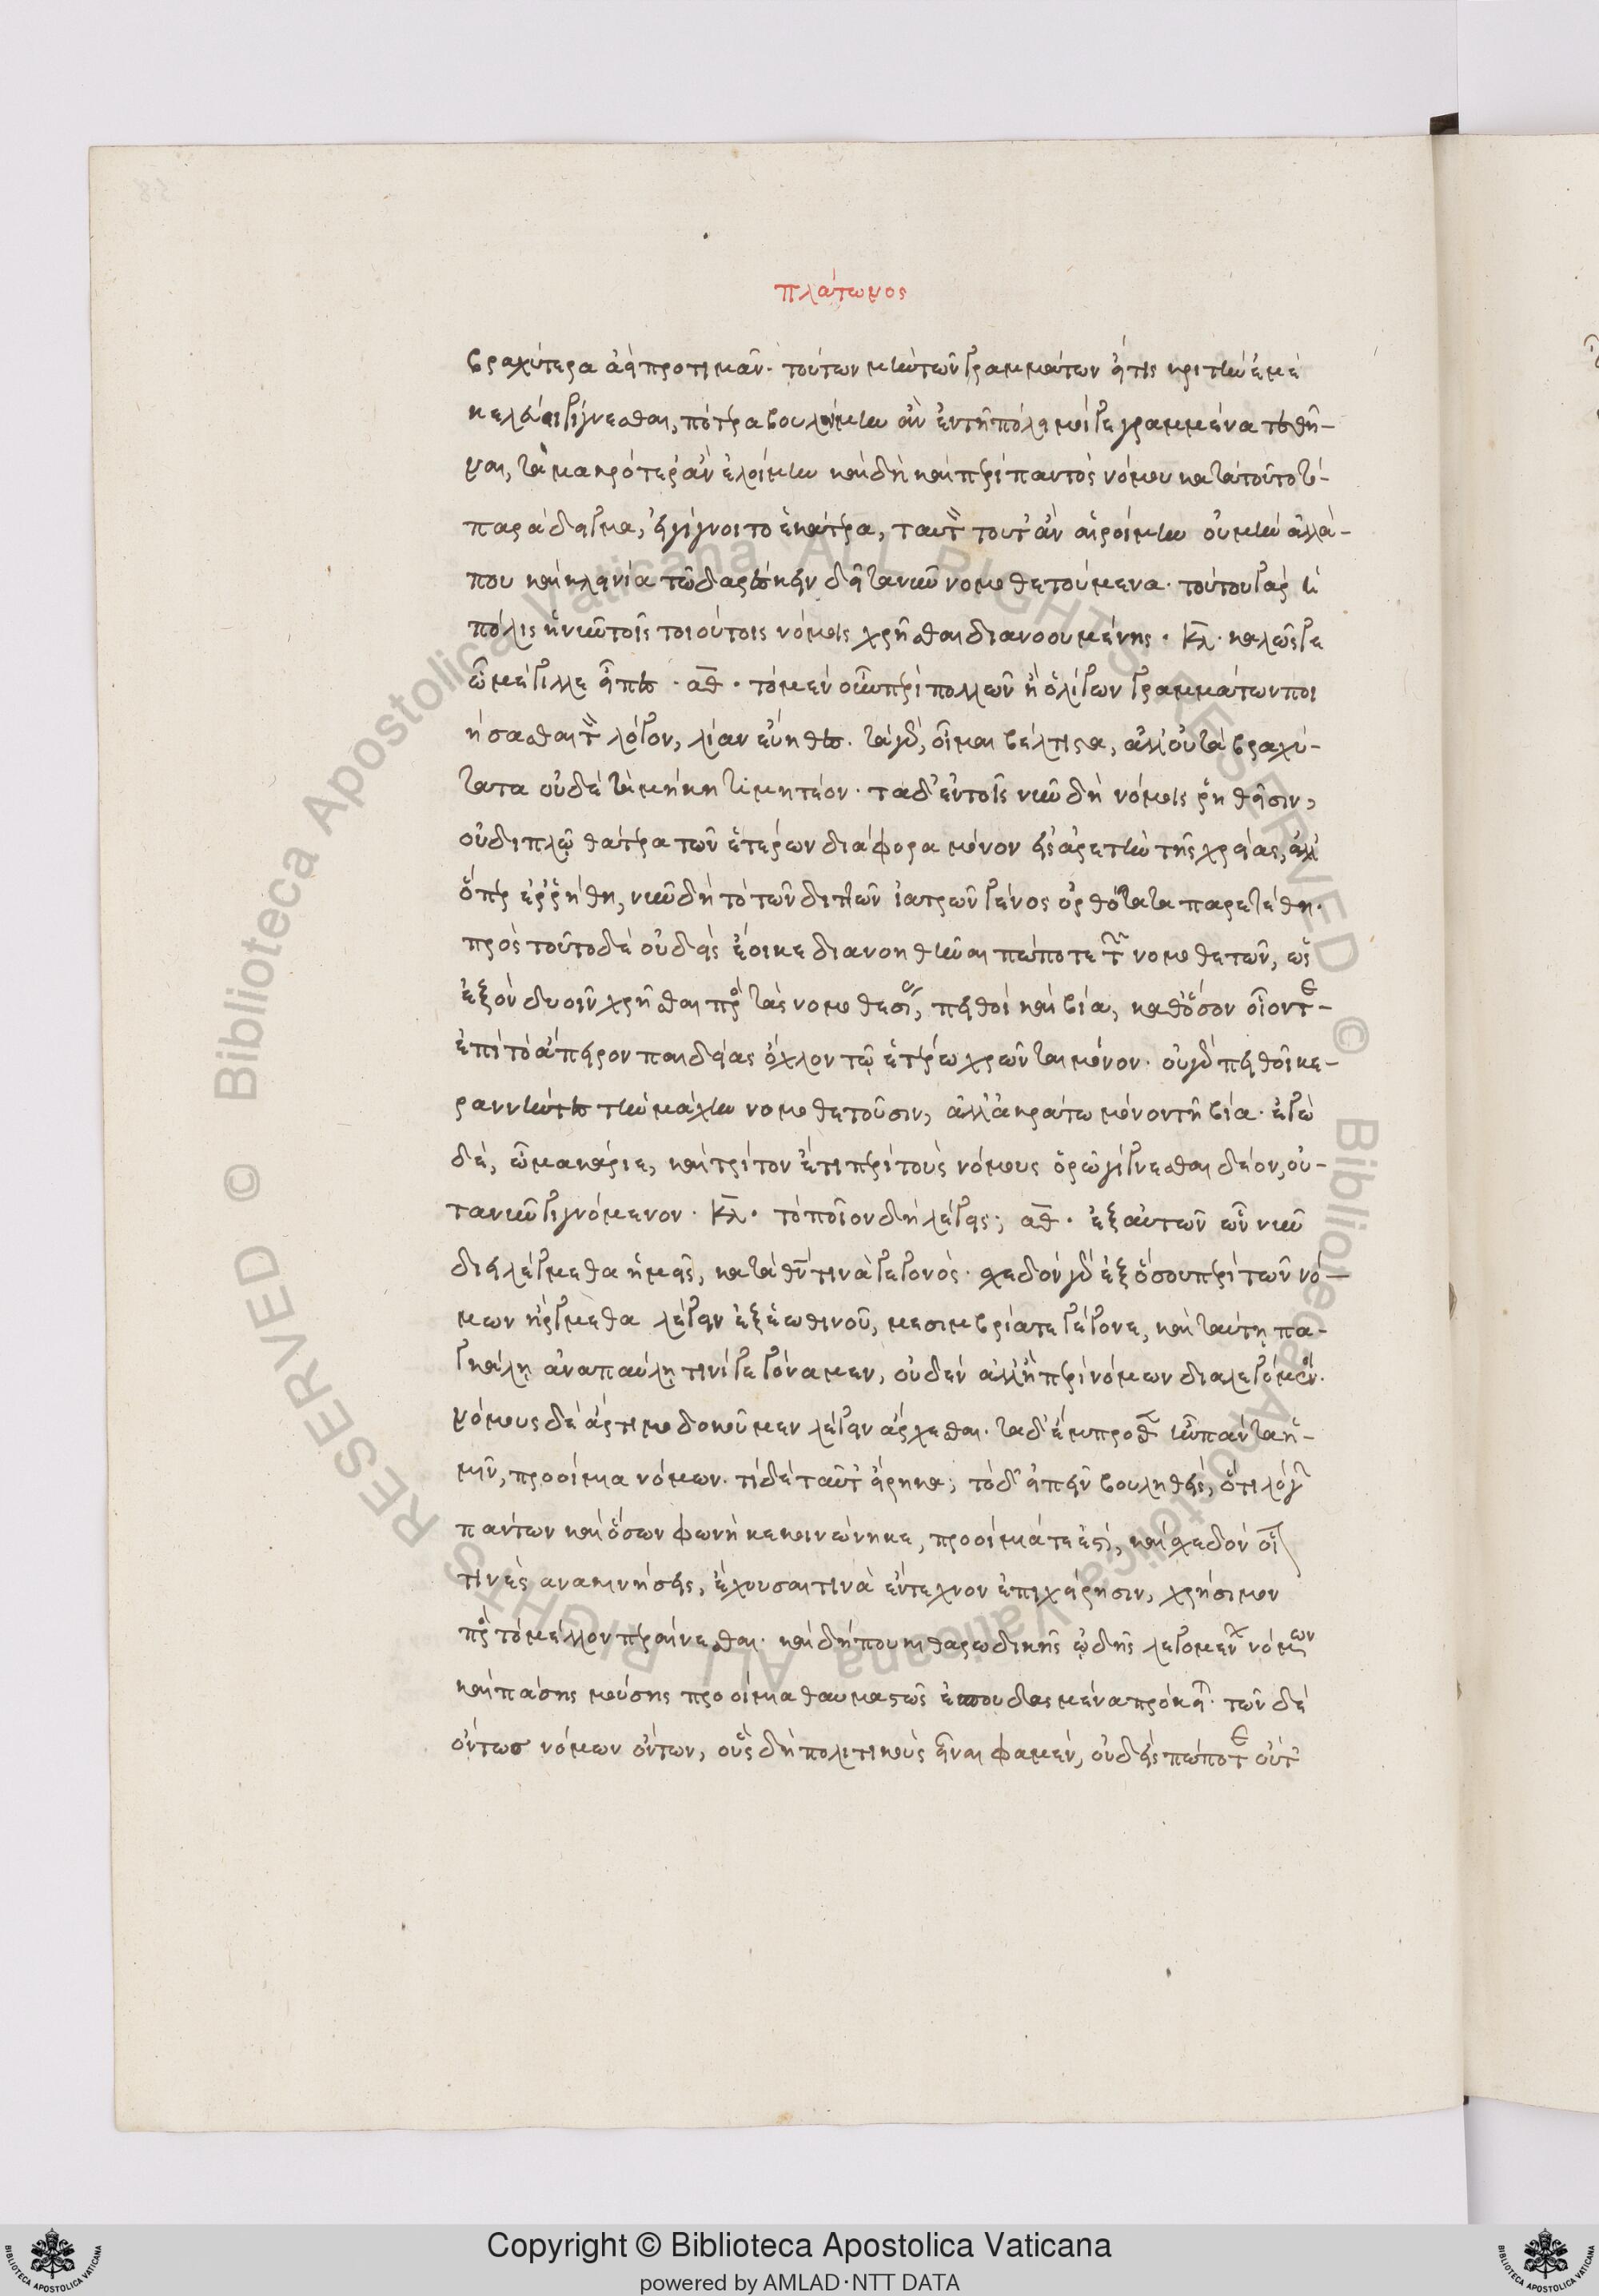 πλάτωνος
βραχύτερα ἀεὶ προτιμᾶν. τούτων μὴν τῶν γραμμάτων εἴ τις κριτὴν ἐμὲ
κελεύει γίγνεσθαι, πότερα βουλοίμην ἂν ἐν τῇ πόλει μοι γεγραμμένα τεθῆ-
ναι, τὰ μακρότερ' ἂν ἑλοίμην καὶ δὴ καὶ περὶ παντὸς νόμου κατὰ τοῦτο τὸ
παράδειγμα, εἰ γίγνοιτο ἑκάτερα, ταυτὸν τοῦτ' ἂν αἱροίμην οὐ μὴν ἀλλά-
που καὶ κλεινία τῷδ' ἀρέσκειν δεῖ τὰ νῦν νομοθετούμενα. τούτου γὰρ ἡ
πόλις ἡ νῦν τοῖς τοιούτοις νόμοις χρῆσθαι διανοουμένης. κλ. καλῶς γε
ὦ μέγιλλε εἶπες. αθ. τὸ μὲν οὖν περὶ πολλῶν ἢ ὀλίγων γραμμάτων ποι
ήσασθαι τὸν λόγον, λίαν εὔηθες. τὰ γὰρ, οἶμαι βέλτιστα, ἀλλ' οὐ τὰ βραχύ-
τατα οὐδὲ τὰ μήκη τιμητέον. τὰ δ' ἐν τοῖς νῦν δὴ νόμοις ῥηθεῖσιν,
οὐ διπλῷ θάτερα τῶν ἑτέρων διάφορα μόνον εἰς ἀρετὴν τῆς χρείας, ἀλλ'
ὅπερ ἐρρήθη, νῦν δὴ τὸ τῶν διττῶν ἰατρῶν γένος ὀρθότατα παρετέθη.
πρὸς τοῦτο δὲ οὐδεὶς ἔοικε διανοηθῆναι πώποτε τῶν νομοθετῶν, ὡς
ἐξὸν δυοῖν χρῆσθαι πρὸς τὰς νομοθεσίας, πειθοῖ καὶ βίᾳ, καθ' ὅσον οἷόν τε-
ἐπὶ τὸ ἄπειρον παιδείας ὄχλον τῷ ἑτέρῳ χρῶνται μόνον. οὐ γὰρ πειθοῖ κε-
ραννύντες τὴν μάχην νομοθετοῦσιν, ἀλλ' ἀκράτῳ μόνον τῇ βίᾳ. ἐγὼ
δὲ, ὦ μακάριε, καὶ τρίτον ἔτι περὶ τοὺς νόμους ὁρῶ γίγνεσθαι δέον, οὐ-
τανῦν γιγνόμενον. κλ. τὸ ποῖον δὴ λέγεις; αθ. ἐξ αὐτῶν ὧν νῦν
διειλέγμεθα ἡμεῖς, κατὰ θεόν τινα γεγονός. σχεδὸν γὰρ ἐξ ὅσου περὶ τῶν νό-
μων ἠργμεθα λέγειν ἐξ ἑωθινοῦ, μεσημβρία τε γέγονε, καὶ ταύτῃ πα-
γκάλῃ ἀναπαύλῃ τινὶ γεγόναμεν, οὐδὲν ἀλλ' ἢ περὶ νόμων διαλεγόμενοι.
νόμους δὲ ἄρτι μοι δοκοῦμεν λέγειν ἄρχεσθαι. τὰ δ' ἔμπροσθεν ἦν πάντα ἡ-
μῖν, προοίμια νόμων. τί δὲ ταῦτ' εἴρηκα; τόδ' εἰπεῖν βουληθεὶς, ὅτι λόγων
πάντων καὶ ὅσων φωνὴ κεκοινώνηκε, προοίμιά τέ ἐστι, καὶ σχεδὸν οἷον
τινὲς ἀνακινήσεις, ἔχουσαί τινα ἔντεχνον ἐπιχείρησιν, χρήσιμον
πρὸς τὸ μέλλον περαίνεσθαι. καὶ δή που κιθαρῳδικῆς ᾠδῆς λεγομένων νόμων
καὶ πάσης μούσης προοίμια θαυμαστῶς ἐσπουδασμένα πρόκειται. τῶν δὲ
ὄντως νόμων ὄντων, οὓς δὴ πολιτικοὺς εἶναι φαμὲν, οὐδεὶς πώποτε οὔτ'
Copyright © Biblioteca Apostolica Vaticana
powered by AMLAD·NTT DATA